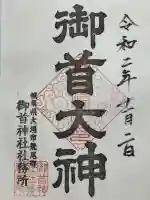 令和二年十一月二日
御首大神
岐阜県大垣市荒尾町
御首神社社務所